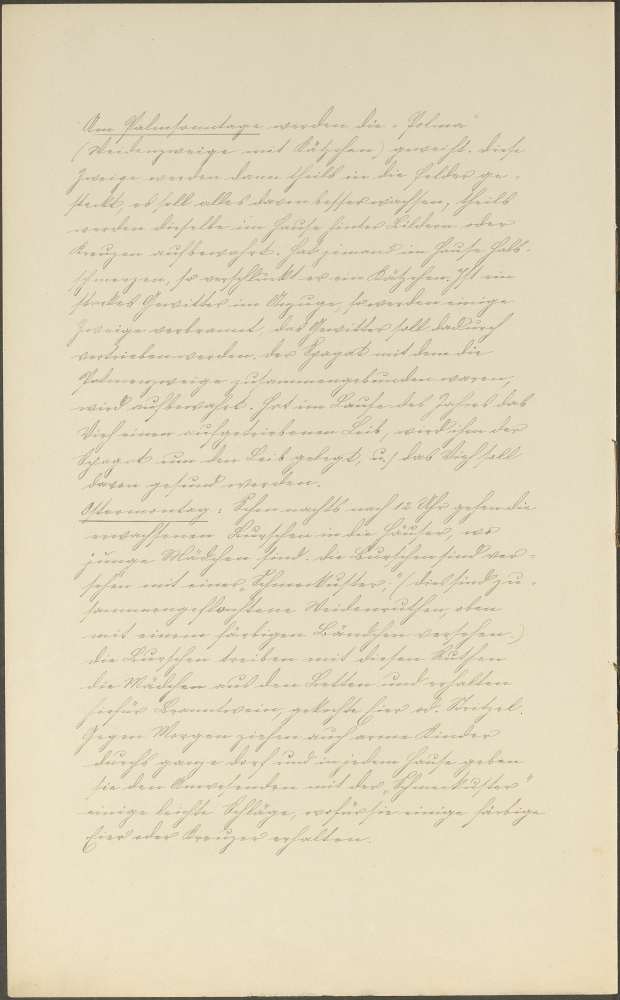 Am Palmsonntage werden die „Palma"
(Weidenzweige mit Kätzchen) geweiht. Diese
Zweige werden dann theils in die Felder ge-
steckt, es soll alles davon besser wachsen, theils
werden dieselbe im Hause hinter Bildern oder
Kreuzen aufbewahrt. Hat jemand im Hause Hals-
schmerzen, so verschluckt er ein Kätzchen. Ist ein
starkes Gewitter im Anzuge, so werden einige
Zweige verbrannt, das Gewitter soll dadurch
vertrieben werden, der Spagat mit dem die
Palmenzweige zusammengebunden waren,
wird aufbewahrt. Hat im Laufe des Jahres das
Vieh einen aufgetriebenen Leib, wird ihm der
Spagat um den Leib gelegt, u. das Vieh soll
davon gesund werden.
Ostermontag: Schon nachts nach 12 Uhr gehen die
erwachsenen Burschen in die Häuser, wo
junge Mädchen sind. Die Burschen sind ver-
sehen mit einer „Schmeckuster," (dies sind zu-
sammengeflochtene Weidenruthen, oben
mit einem färbigen Bändchen versehen.)
die Burschen treiben mit diesen Ruthen
die Mädchen aus den Betten und erhalten
hiefür Branntwein, gekochte Eier od. Stritzel.
Gegen Morgen ziehen auch arme Kinder
durchs ganze Dorf und in jedem Hause geben
sie den Anwesenden mit der „Schmeckuster"
einige leichte Schläge, wofür sie einige färbige
Eier oder Kreuzer erhalten.